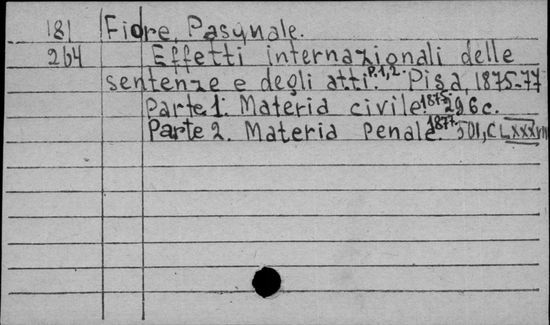 181 Fiore, Pasquale.
264 Effetti internazionali delle
sentenze e degli atti. P.1,2. Pisa, 1875-77
Parte 1. Materia civile. 1875. 296 c.
Parte 2. Materia penale. 1877. 501, CLXXXVIII